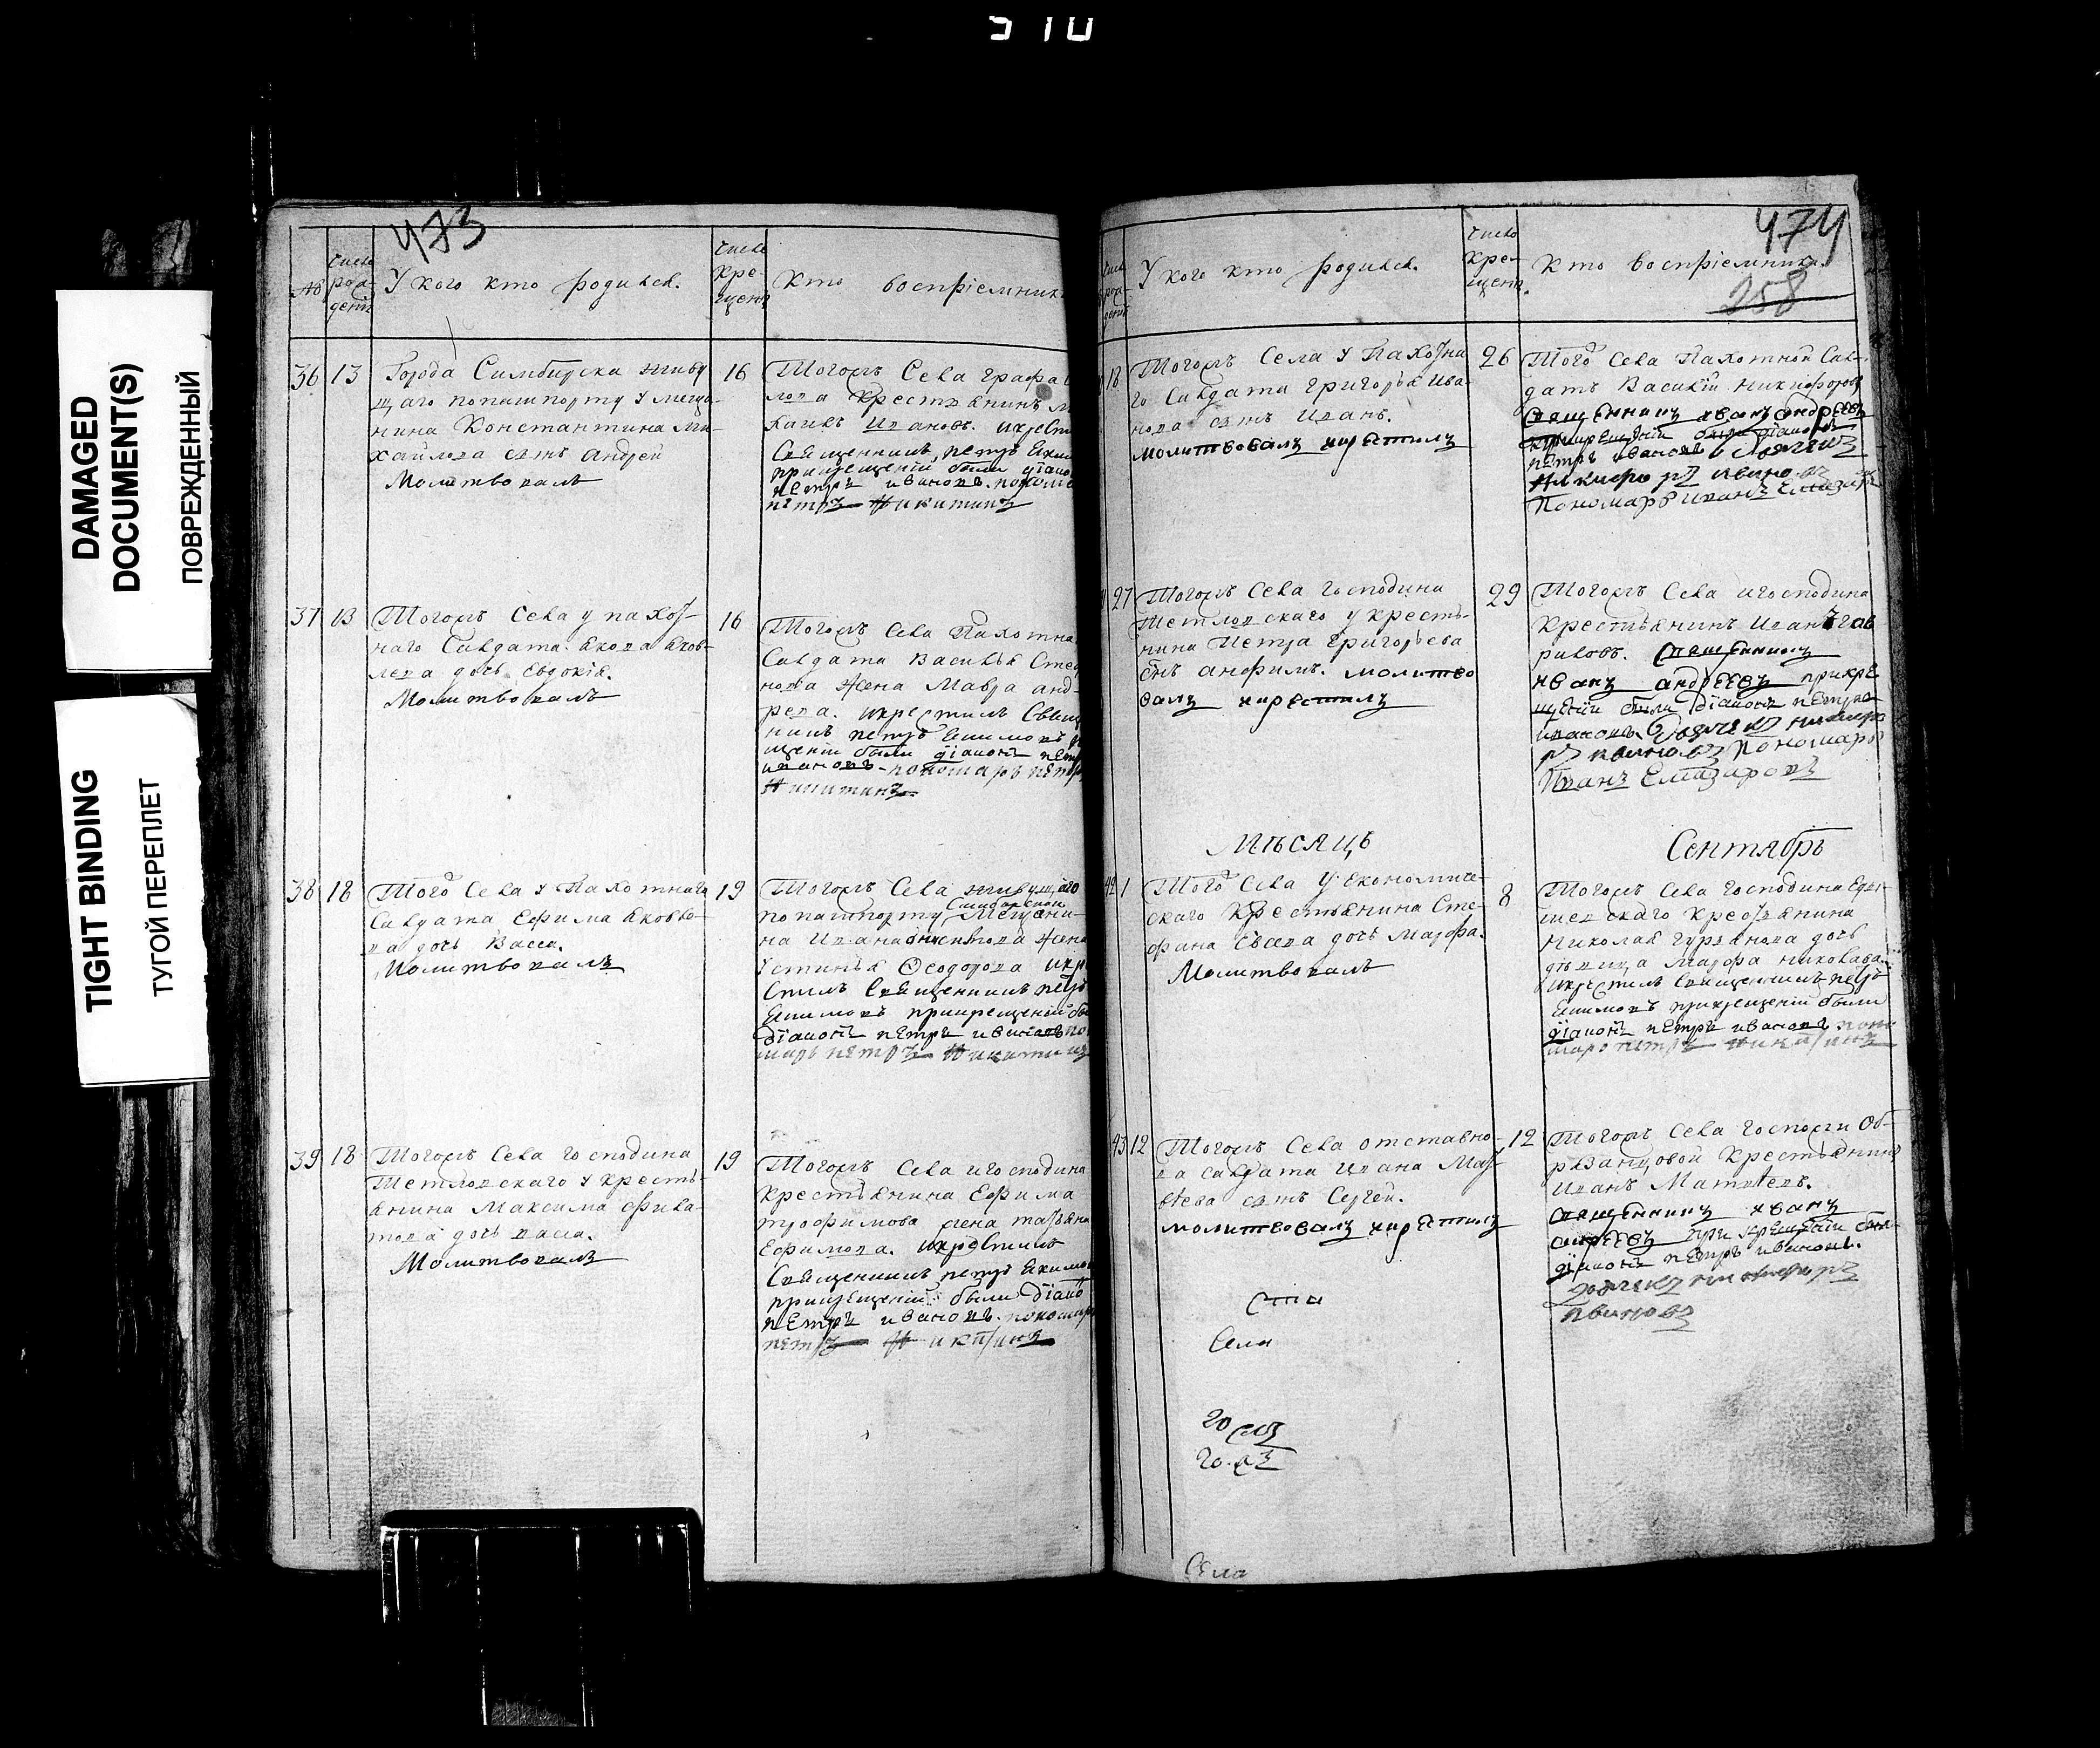 310
DAMAGED
DOCUMENT(S)
ПОВРЕЖДЕННЫЙ
TIGHT BINDING
ТУГОЙ ПЕРЕПЛЕТ
473
№
Число рождені
У кого кто родился.
Число крещені
Кто воспріемник
36 13
Города Симбирска живу
щаго попашпорту у меща-
нина Константина Ми-
хайлова снъ Андрей
Молитвовалъ
16
Тогожъ Села графа
лова Крестьянинъ м
хаилъ Ивановъ. икрести
Священникъ, петръ Екимо
прикрещеніи были діако
петръ ивановъ. понома
петръ Никитинъ
37 13
Тогожъ Села у пахот-
наго Салдата Якова Яков-
лева дочь Евдокія.
Молитвовалъ
16
Тогожъ Села Пахотна
Салдата Василья Степа
нова жена Мавра анд-
реева. икрестилъ Свящ
никъ петръ Екимовъ
щеніи были діаконъ петр
ивановъ пономарь петръ
Никитинъ
38 18
Того Села у Пахотнаго
Салдата Ефима Яковле-
ва дочь Васса.
Молитвовалъ
19
Тогожъ Села живущаго
попашпорту Симбирскои Мещани-
на Ивана жена
Устинья Ѳеодорова икр
стилъ Священникъ петръ
Екимовъ прикрещеніи бы
діаконъ петръ ивановъ по
марь петръ Никитинъ
39 18
Тогожъ Села Господина
Петловскаго у кресть-
янина Максима Фила-
това дочь васса.
Молитвовалъ
19
Тогожъ Села игосподина
крестьянина Ефима
трофимова жена татьяна
Ефимова. икрестилъ
Священникъ петръ Екимо
прикрещеніи были діако
петръ ивановъ. пономарь
петръ Никитинъ
474
258
У кого кто родился.
Число крещені
Кто воспріемникъ
18
Тогожъ Села у Пахотна
го Салдата Григорья Ива-
нова снъ Иванъ.
молитвовалъ икрестилъ
26
Того Села Пахотной Сал-
датъ Василій Никифоровъ
Священникъ иванъ андреевъ
прикрещеніи были діаконъ
петръ ивановъ
Пономарь иванъ Елизаровъ
27
Тогожъ Села Господина
Петловскаго у кресть-
нина Петра Григорьева
снъ анфимъ. молитво
валъ икрестилъ
29
Тогожъ Села игосподина
Крестьянинъ Иванъ Гав
риловъ. Священникъ
иванъ андреевъ прикре
щеніи были діаконъ петръ
ивановъ.
Пономарь
Иванъ Елизаровъ
Мѣсяцъ Сентябрь
42 1
Того Села У Економиче-
скаго Крестьянина Сте-
фана Евсева дочь Марфа.
Молитвовалъ
8
Тогожъ Села Господина
Крестьянина
Николая Гурьянова дочь
дѣвица Марфа Николаева
икрестилъ Священникъ петръ
Екимовъ прикрещеніи были
діаконъ петръ ивановъ поно
марь петръ Никитинъ
43 12
Тогожъ Села отставно-
ва салдата Ивана Мат-
вѣева снъ Сергей.
молитвовалъ икрестилъ
12
Тогожъ Села Госпожи Об-
рѣзанцовой Крестьянинъ
Иванъ Матвѣевъ.
Священникъ иванъ
андреевъ при крещеніи были
діаконъ петръ ивановъ.
Села
Села